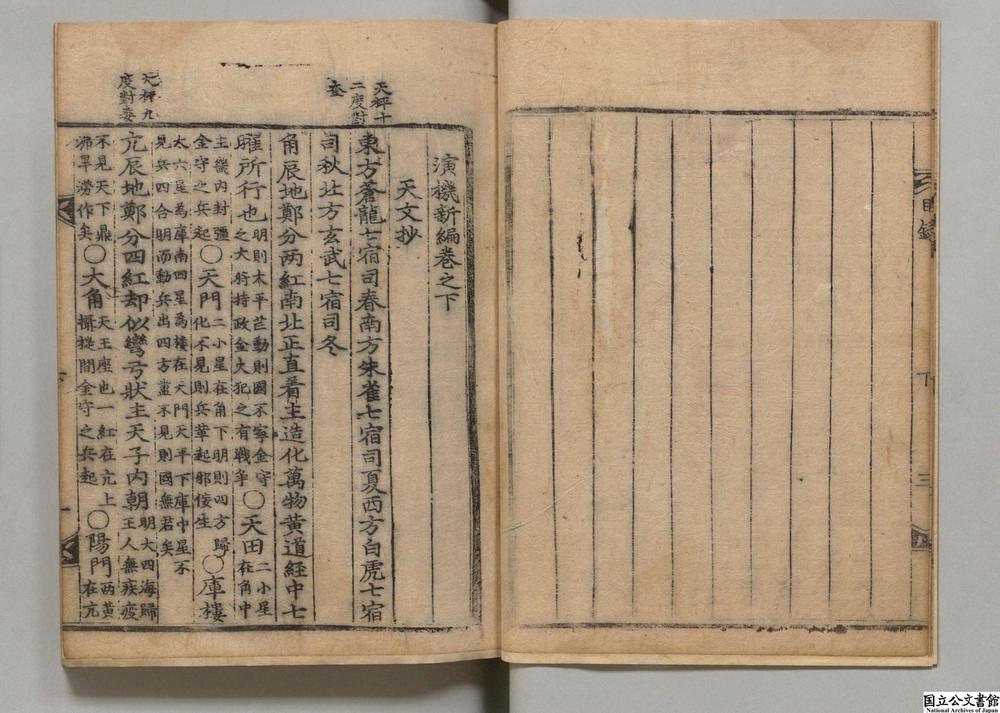 目錄
下
三
演機新編卷之下
天文抄
天秤十
二度對
奎
東方蒼龍七宿司春南方朱雀七宿司夏西方白虎七宿
司秋北方玄武七宿司冬
角辰地鄭分两紅南北正直着主造化萬物黄道經中七
曜所行也
明則太平芒動則國不寧金守
之大將持政金火犯之有戰爭
〇天田
二小星
在角中
主畿内封疆
金守之兵起
〇天門
二小星在角下明則四方歸
化不見則兵革起邪佞生
〇庫樓
太六星為庫南四星為樓在天門天平下庫中星不
見兵四合明而動兵出四方盡不見則國無君矣
天秤九
度對奎
亢辰地鄭分四紅却似彎弓狀主天子内朝
明大四海歸
王人無疾疫
不見天下鼎
沸旱澇作矣
〇大角
天王座也一紅在亢上
攝提間金守之兵起
〇陽門
两黄
在亢
国立公文書館
National Archives of Japan